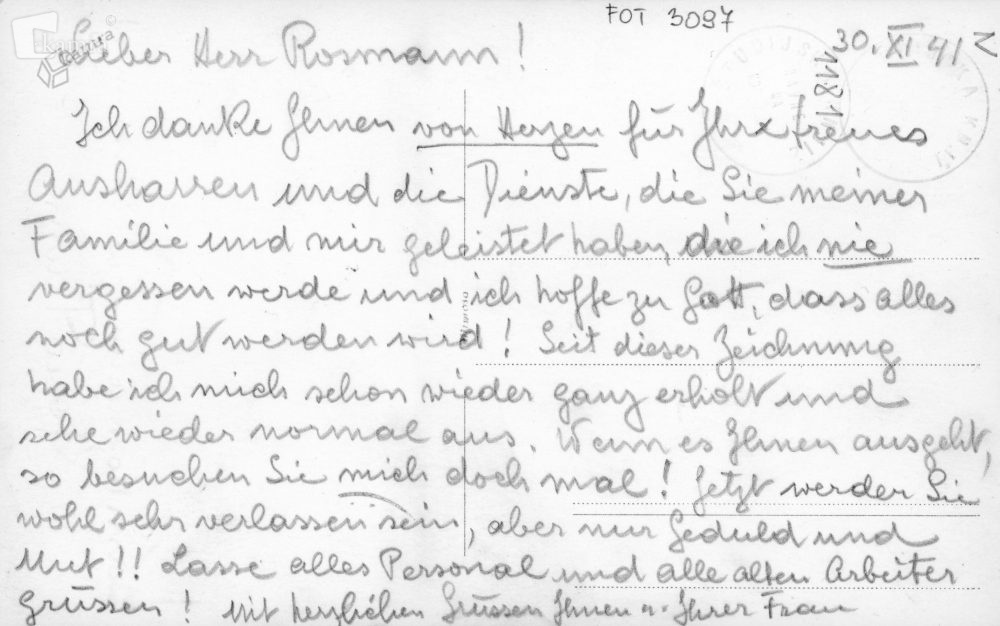 FOT 3097
30. XI 41
1181
Lieber Herr Rosmann!
Ich danke Ihnen von Herzen für Ihr treues
Ausharren und die Dienste, die Sie meiner
Familie und mir geleistet haben, die ich nie
vergessen werde und ich hoffe zu Gott, dass alles
noch gut werden wird! Seit dieser Zeichnung
habe ich mich schon wieder ganz erholt und
sehe wieder normal aus. Wenn es Ihnen ausgeht,
so besuchen Sie mich doch mal! Jetzt werden Sie
wohl sehr verlassen sein, aber nur Geduld und
Mut!! Lasse alles Personal und alle alten Arbeiter
grüssen! Mit herzlichen Grüssen Ihnen u. Ihrer Frau